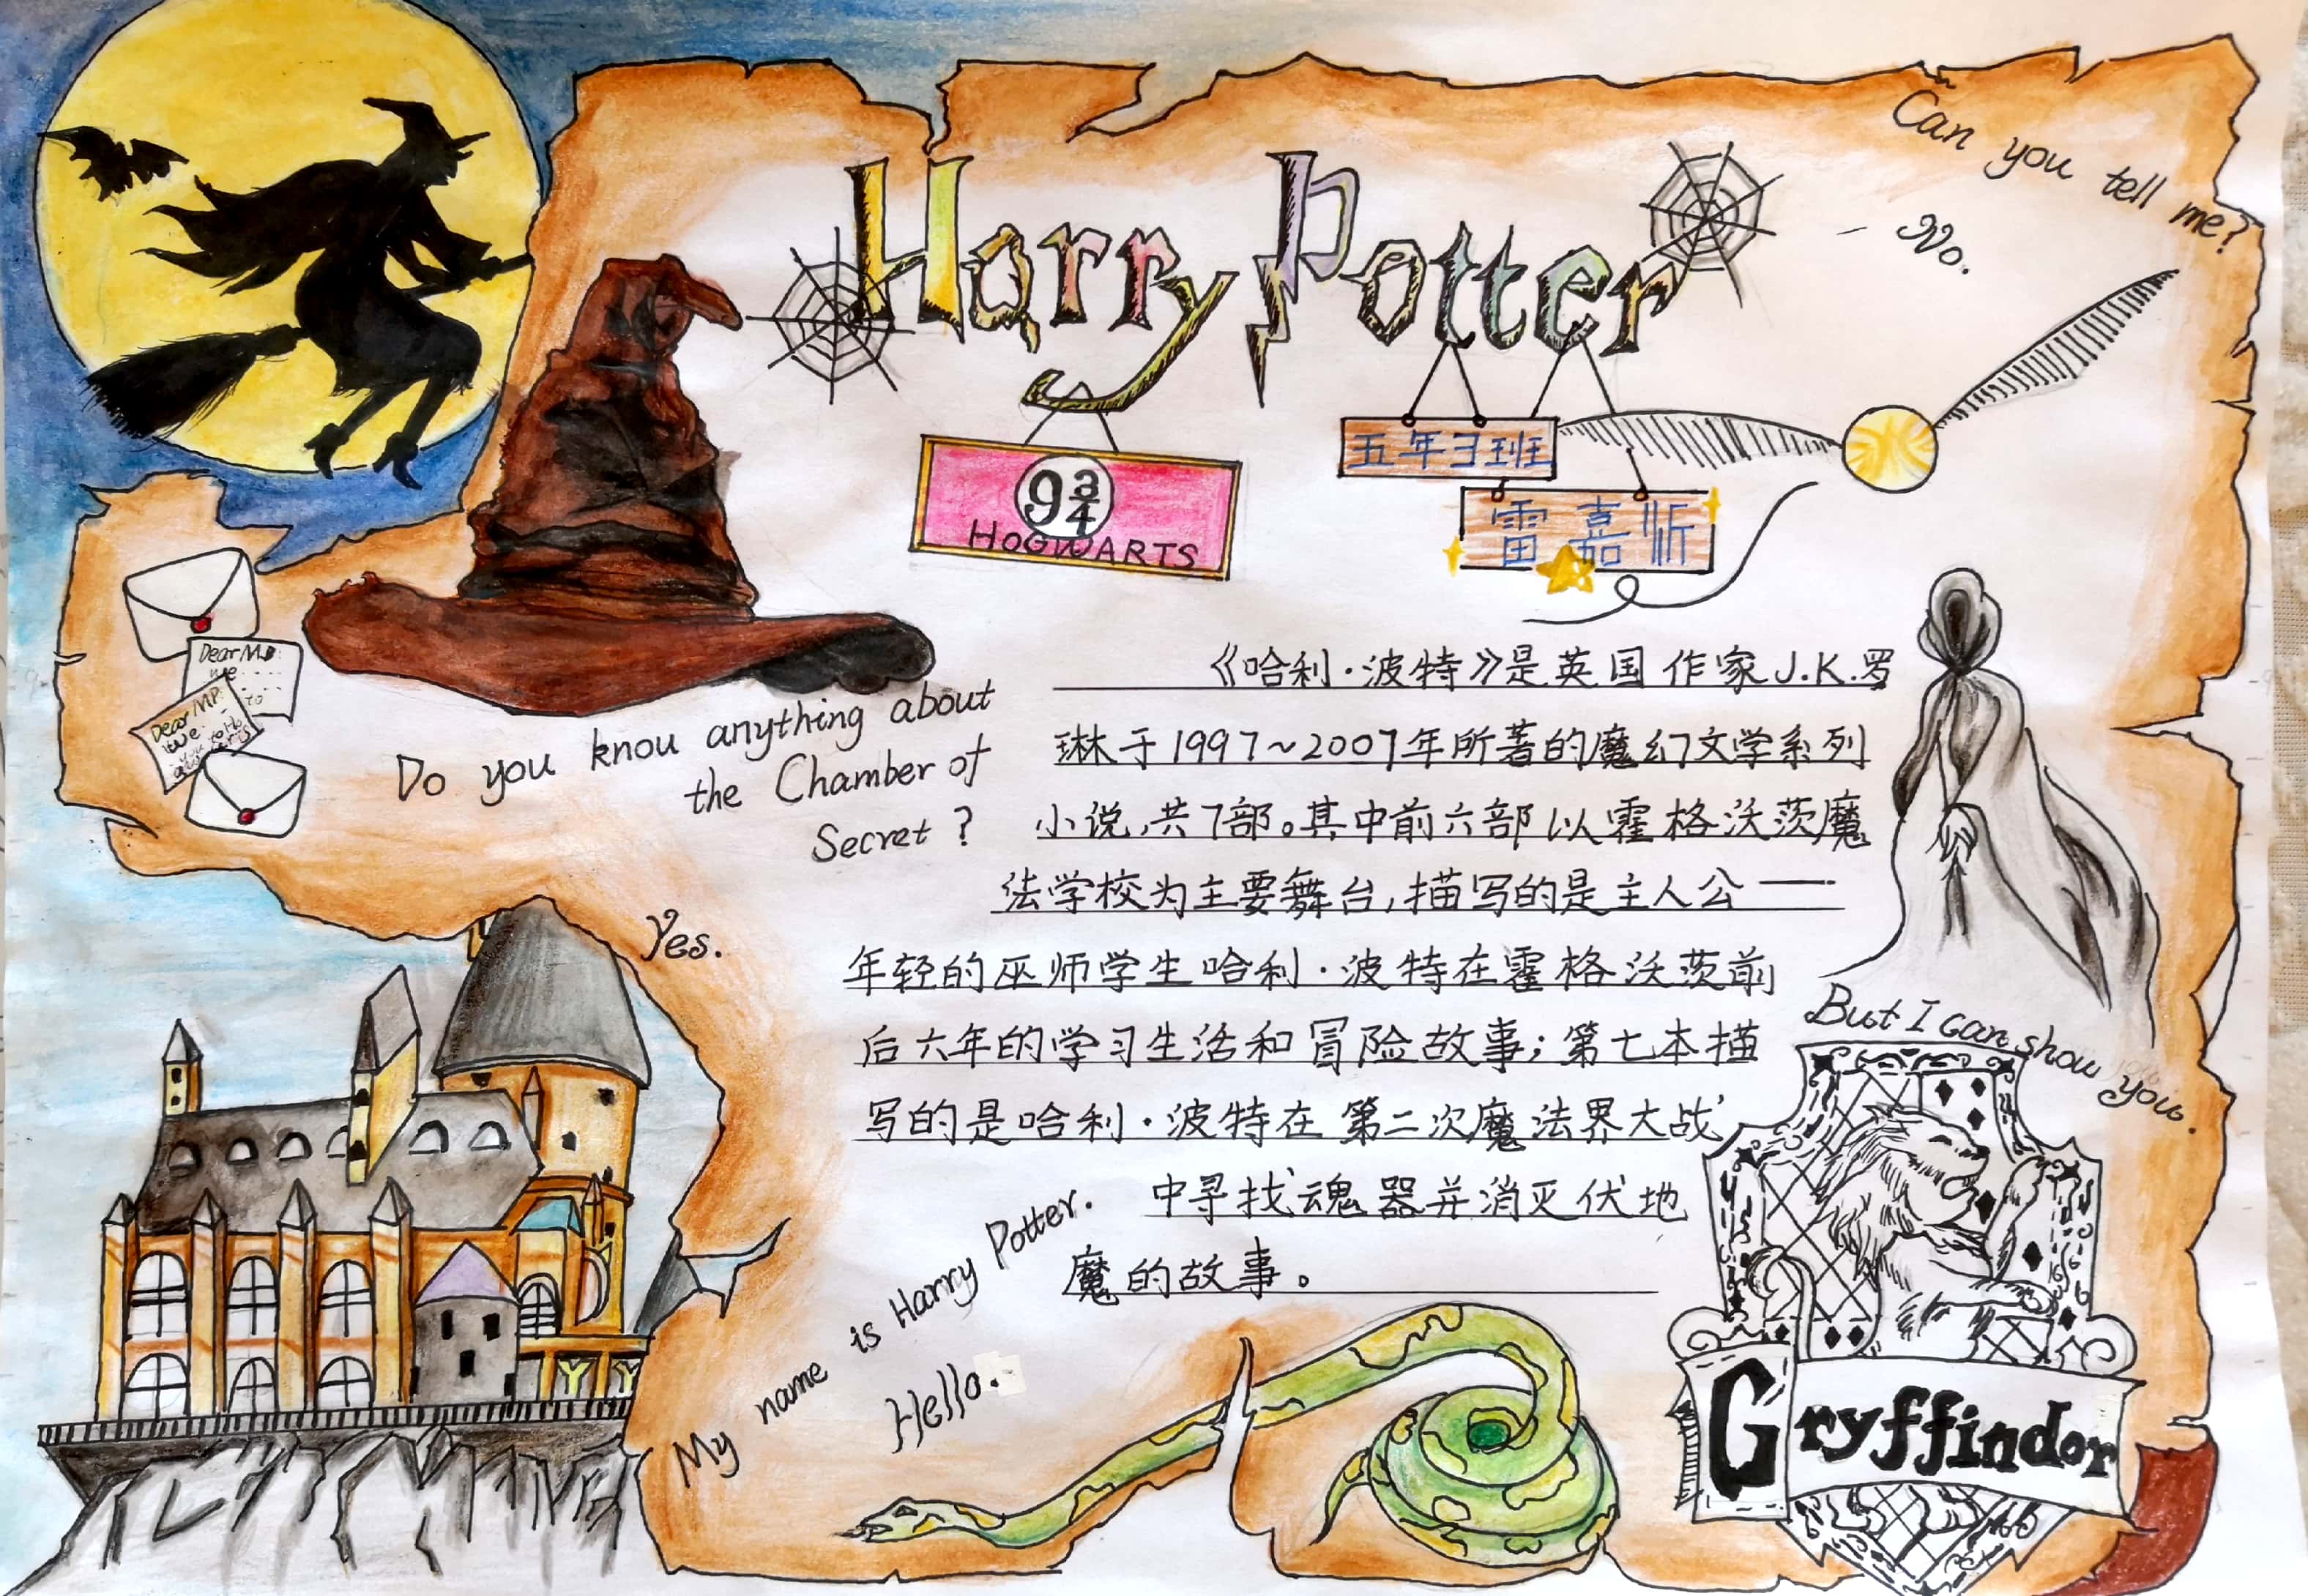 Harry Potter
Can you tell me?
- No.
9 3/4
HOGWARTS
五年3班
雷嘉昕
Dear M
we
to
Dear MP.
we
Do you knou anything about
the Chamber of
Secret ?
Yes.
《哈利·波特》是英国作家J.K.罗
琳于1997~2007年所著的魔幻文学系列
小说,共7部。其中前六部以霍格沃茨魔
法学校为主要舞台,描写的是主人公——
年轻的巫师学生哈利·波特在霍格沃茨前
后六年的学习生活和冒险故事;第七本描
写的是哈利·波特在第二次魔法界大战
中寻找魂器并消灭伏地
魔的故事。
But I can show you.
My name is Harry Potter.
Hello.
Gryffindor